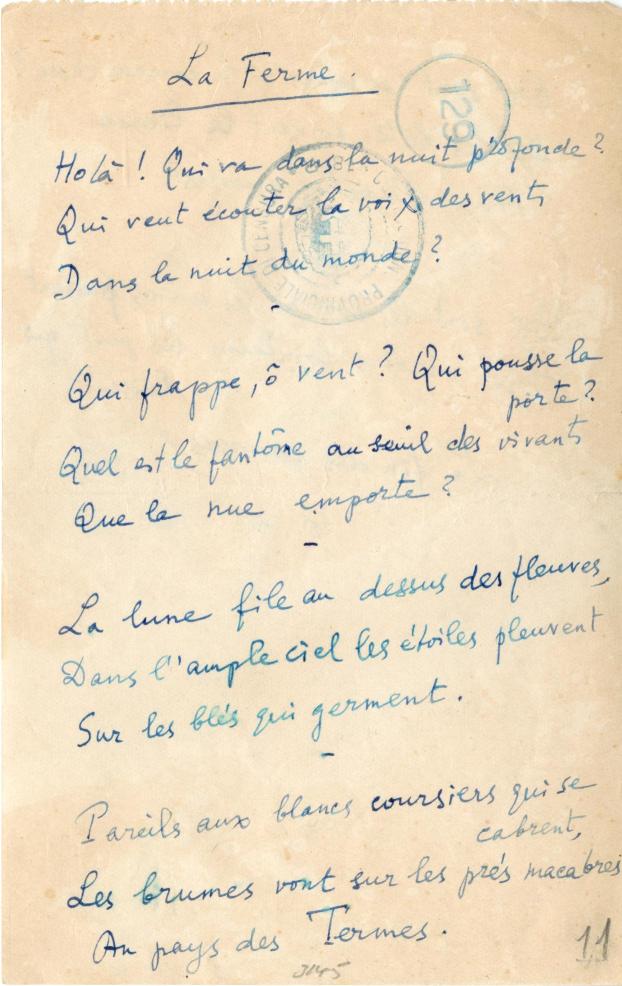 La Ferme.
129
Holà ! Qui va dans la nuit profonde ?
Qui veut écouter la voix des vents
Dans la nuit du monde ?
-
Qui frappe, ô vent ? Qui pousse la
porte ?
Quel est le fantôme au seuil des vivants
Que la nue emporte ?
-
La lune file au dessus des fleuves,
Dans l'ample ciel les étoiles pleuvent
Sur les blés qui germent.
-
Pareils aux blancs coursiers qui se
cabrent,
Les brumes vont sur les prés macabres
Au pays des Termes.
11
3145